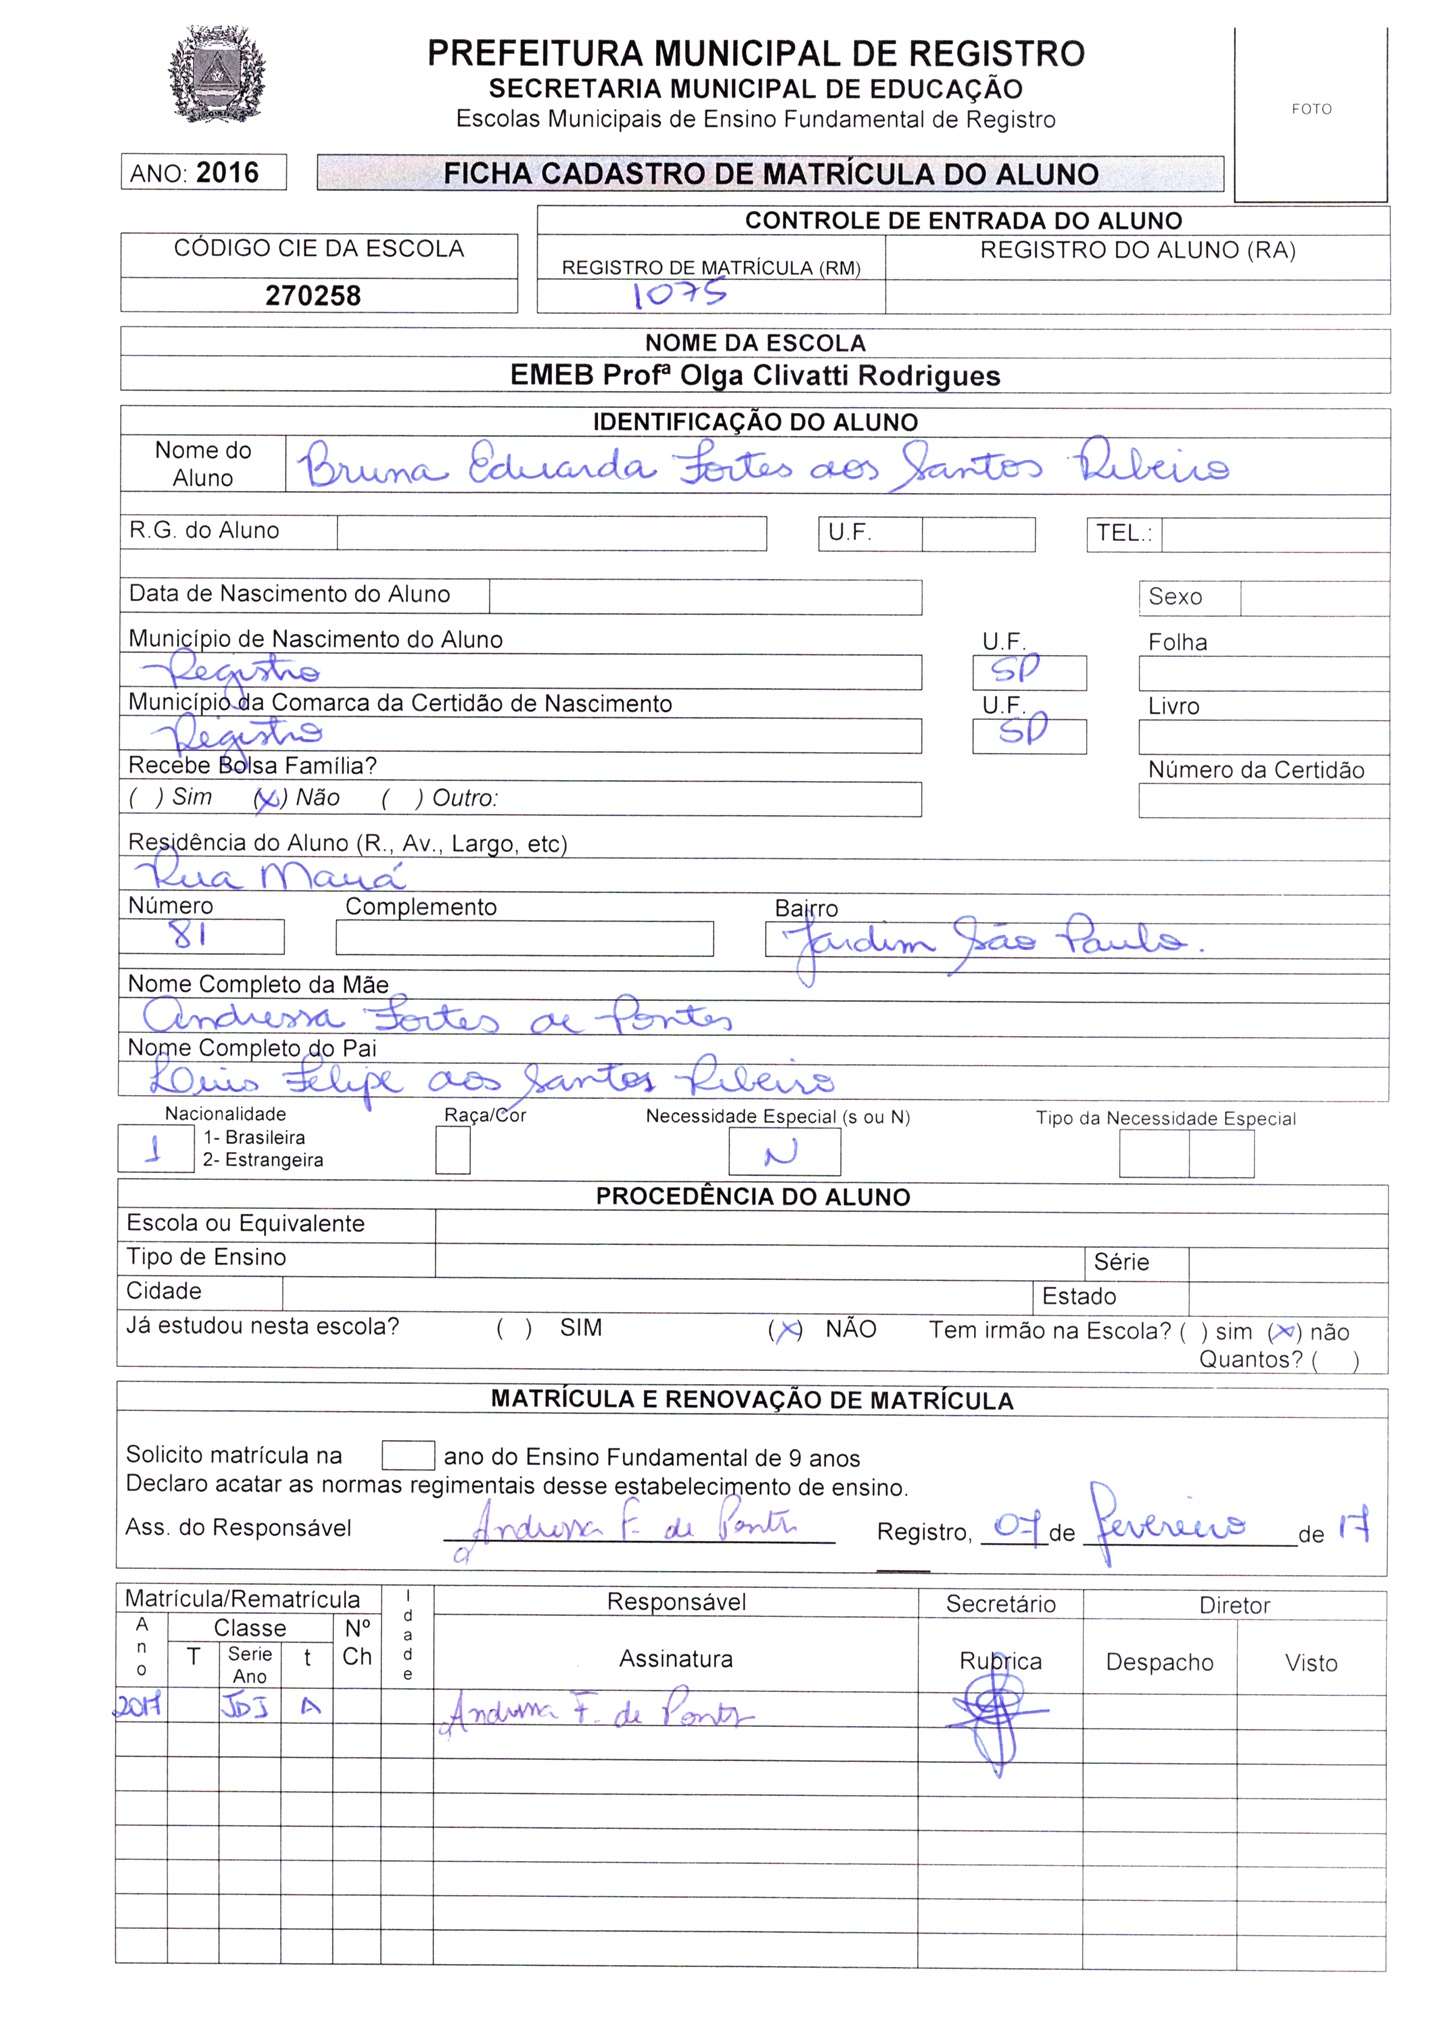 PREFEITURA MUNICIPAL DE REGISTRO
SECRETARIA MUNICIPAL DE EDUCAÇÃO
Escolas Municipais de Ensino Fundamental de Registro
FOTO
ANO: 2016
FICHA CADASTRO DE MATRÍCULA DO ALUNO
CONTROLE DE ENTRADA DO ALUNO
CÓDIGO CIE DA ESCOLA
REGISTRO DE MATRÍCULA (RM)
REGISTRO DO ALUNO (RA)
270258
1075
NOME DA ESCOLA
EMEB Profª Olga Clivatti Rodrigues
IDENTIFICAÇÃO DO ALUNO
Nome do Aluno Bruna Eduarda Fortes dos Santos Ribeiro
R.G. do Aluno U.F. TEL.:
Data de Nascimento do Aluno Sexo
Município de Nascimento do Aluno U.F. Folha
Registro SP
Município da Comarca da Certidão de Nascimento U.F. Livro
Registro SP
Recebe Bolsa Família? Número da Certidão
( ) Sim (x) Não ( ) Outro:
Residência do Aluno (R., Av., Largo, etc)
Rua Mauá
Número Complemento Bairro
81 Jardim São Paulo.
Nome Completo da Mãe
Andressa Fortes de Pontes
Nome Completo do Pai
Luis Felipe dos Santos Ribeiro
Nacionalidade Raça/Cor Necessidade Especial (s ou N) Tipo da Necessidade Especial
1 1- Brasileira N
2- Estrangeira
PROCEDÊNCIA DO ALUNO
Escola ou Equivalente
Tipo de Ensino Série
Cidade Estado
Já estudou nesta escola? ( ) SIM (x) NÃO Tem irmão na Escola? ( ) sim (x) não
Quantos? ( )
MATRÍCULA E RENOVAÇÃO DE MATRÍCULA
Solicito matrícula na ano do Ensino Fundamental de 9 anos
Declaro acatar as normas regimentais desse estabelecimento de ensino.
Ass. do Responsável Andressa F. de Pontes Registro, 07 de fevereiro de 17
Matrícula/Rematrícula Idade Responsável Secretário Diretor
Ano Classe Nº
T Serie Ano t Ch Assinatura Rubrica Despacho Visto
2017 JDI A Andressa F. de Pontes